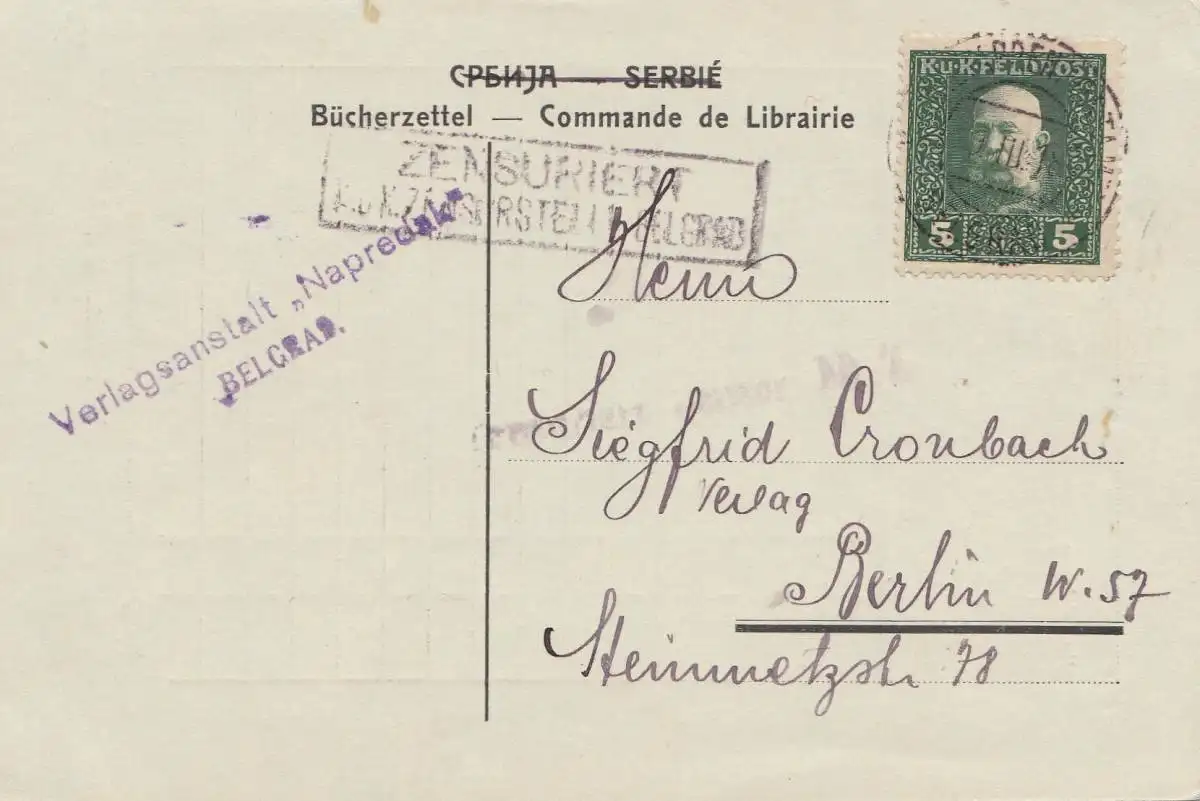 СРБИЈА — SERBIÉ
Bücherzettel — Commande de Librairie
K.U.K.FELDPOST
5 5
ZENSURIERT
K.u.K. ZENSURSTELLE BELGRAD
Verlagsanstalt „Napredak"
BELGRAD.
Herrn
Siegfrid Cronbach
Verlag
Berlin W. 57
Steinmetzstr. 78